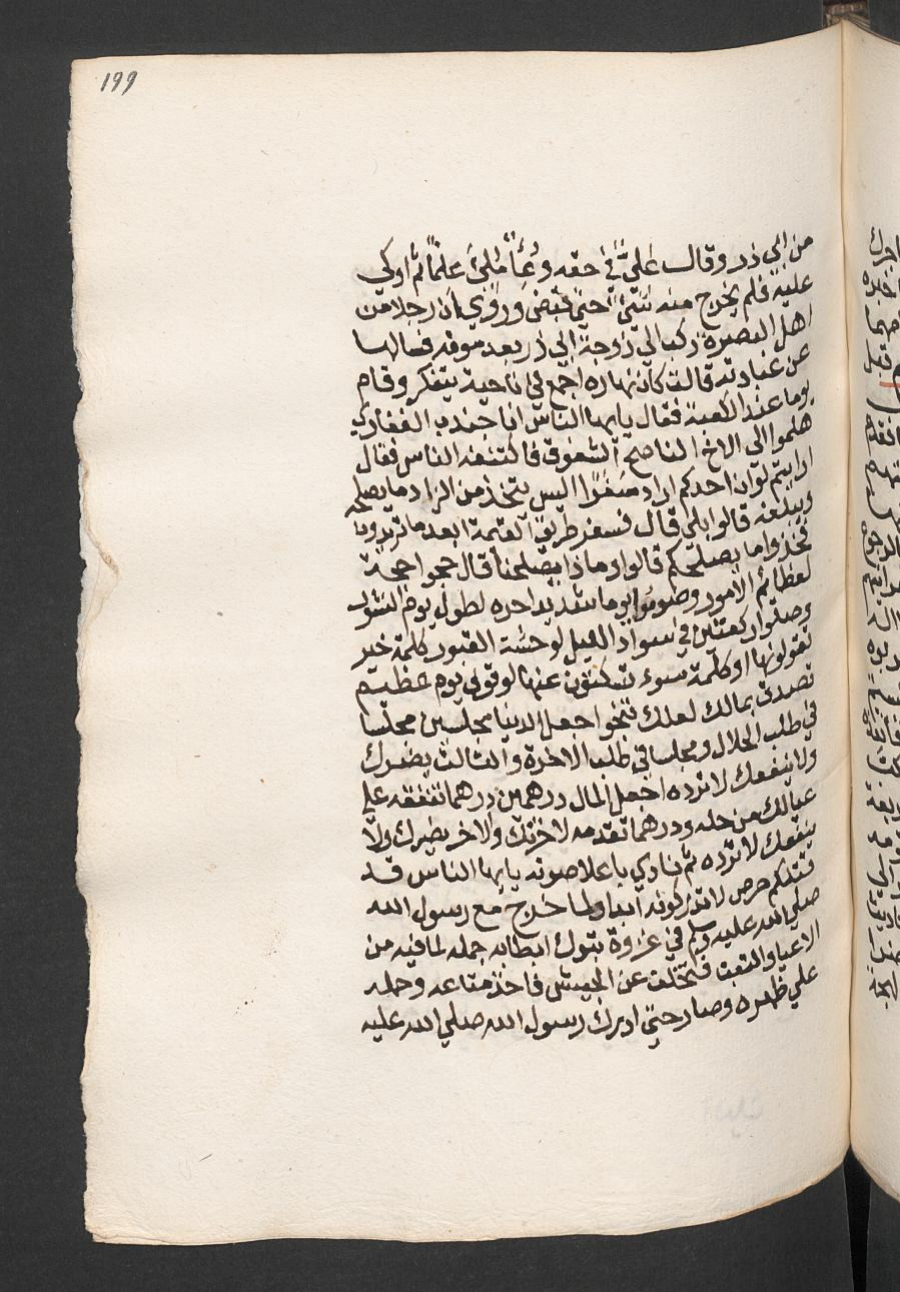 199
من ابي ذر وقال علي في حقه وعاء ملئ علما ثم اوكي
عليه فلم يخرج منه شئ حتي قبض وروي ان رجلا من
اهل البصرة ركب الي زوجة ابي ذر بعد موته فسالها
عن عبادته قالت كان نهاره اجمع في ناحية يتفكر وقام
يوما عند الكعبة فقال يايها الناس انا جندب الغفاري
هلموا الي الاخ الناصح الشفوق فاكتنفه الناس فقال
ارايتم لو ان احدكم اراد سفرا اليس يتخذ من الزاد ما يصلحه
ويبلغه قالوا بلي قال فسفر طريق القيمة ابعد ما تريدون
فخذوا ما يصلحكم قالوا وما ذا يصلحنا قال حجوا حجة
لعظائم الامور وصوموا يوما شديدا حره لطول يوم النشور
وصلوا ركعتين في سواد الليل لوحشة القبور كلمة خير
تقولونها او كلمة سوء تسكتون عنها لوقوف يوم عظيم
تصدق بمالك لعلك تنجوا اجعل الدنيا مجلسين مجلسا
في طلب الحلال ومجلسا في طلب الاخرة والثالث يضرك
ولا ينفعك لا ترده اجعل المال درهمين درهما تنفقه علي
عيالك من حله ودرهما تقدمه لاخرتك والاخر يضرك ولا
ينفعك لا ترده ثم نادي باعلا صوته يايها الناس قد
قتلكم حرص لا تدركونه ابدا ولما خرج مع رسول الله
صلي الله عليه وسلم في غزوة تبوك ابطا به جمله لما فيه من
الاعيا والتعب فتخلف عن الجيش فاخذ متاعه وحمله
علي ظهره وصار حتي ادرك رسول الله صلي الله عليه